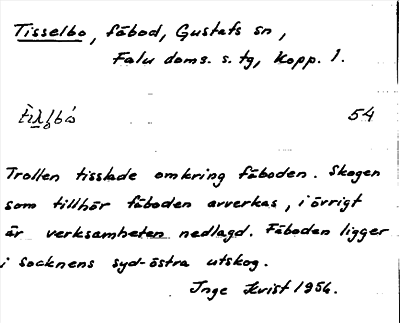 Tisselbo, fäbod, Gustafs sn,
Falu doms. s. tg, Kopp. l.
54
Trollen tisslade omkring fäboden. Skogen
som tillhör fäboden avverkas, i övrigt
är verksamheten nedlagd. Fäboden ligger
i socknens syd-östra utskog.
Inge Kvist 1954.